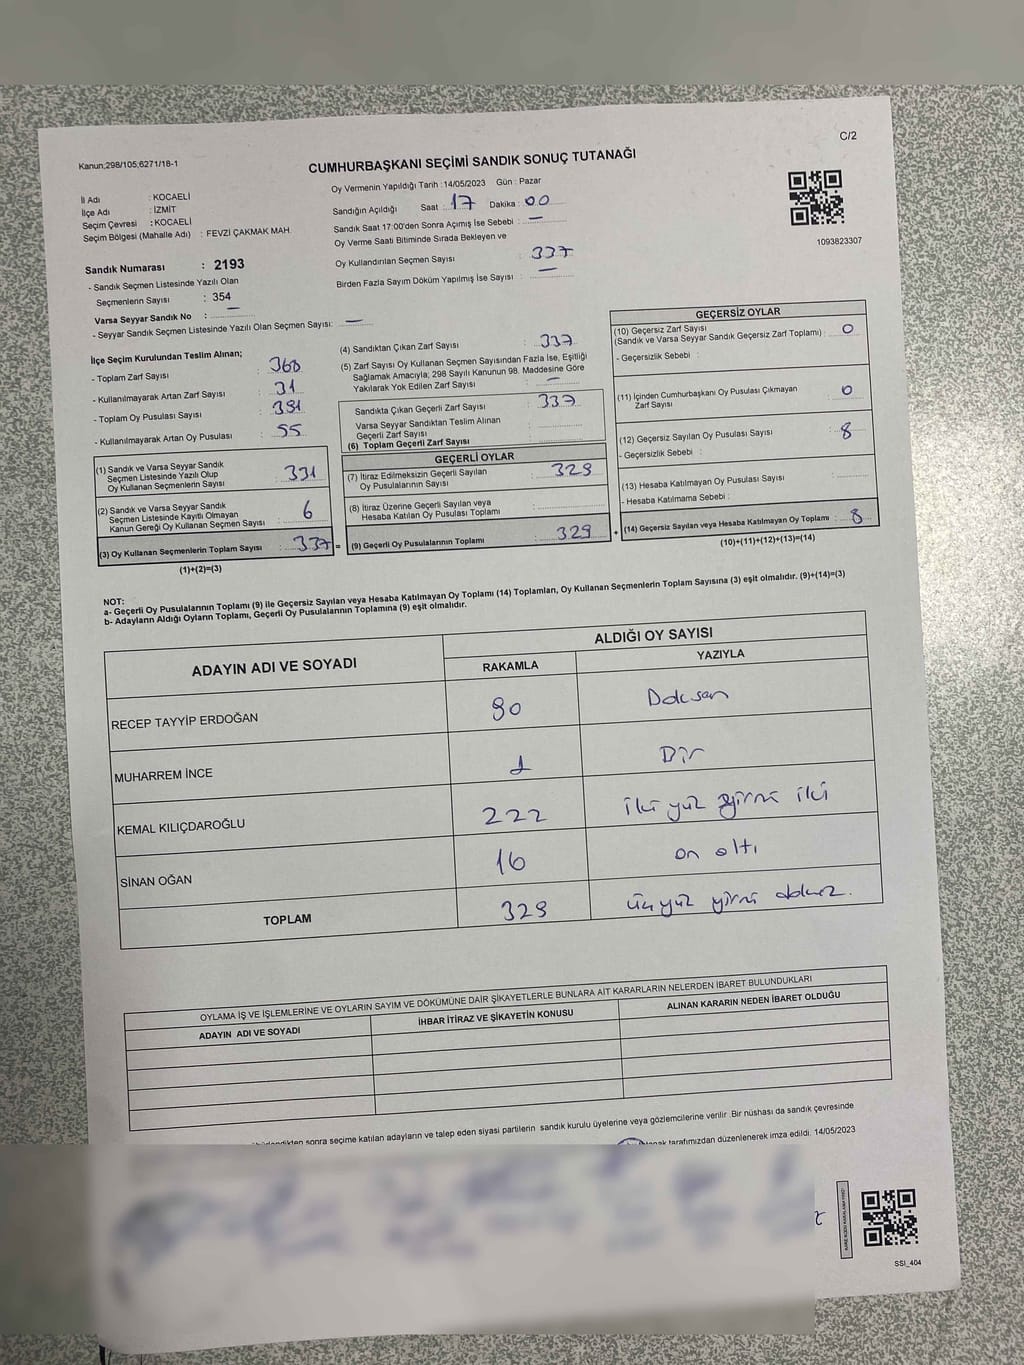 C/2
Kanun;298/105;6271/18-1
CUMHURBAŞKANI SEÇİMİ SANDIK SONUÇ TUTANAĞI
İl Adı : KOCAELİ
İlçe Adı : İZMİT
Seçim Çevresi : KOCAELİ
Seçim Bölgesi (Mahalle Adı) : FEVZİ ÇAKMAK MAH.
Sandık Numarası : 2193
- Sandık Seçmen Listesinde Yazılı Olan
Seçmenlerin Sayısı : 354
Varsa Seyyar Sandık No : —
- Seyyar Sandık Seçmen Listesinde Yazılı Olan Seçmen Sayısı: —
Oy Vermenin Yapıldığı Tarih : 14/05/2023 Gün : Pazar
Sandığın Açıldığı Saat : 17 Dakika : 00
Sandık Saat 17:00'den Sonra Açımış İse Sebebi : —
Oy Verme Saati Bitiminde Sırada Bekleyen ve
Oy Kullandırılan Seçmen Sayısı : 337
Birden Fazla Sayım Döküm Yapılmış İse Sayısı : —
1093823307
İlçe Seçim Kurulundan Teslim Alınan;
- Toplam Zarf Sayısı : 368
- Kullanılmayarak Artan Zarf Sayısı : 31
- Toplam Oy Pusulası Sayısı : 391
- Kullanılmayarak Artan Oy Pusulası : 55
(1) Sandık ve Varsa Seyyar Sandık
Seçmen Listesinde Yazılı Olup
Oy Kullanan Seçmenlerin Sayısı : 331
(2) Sandık ve Varsa Seyyar Sandık
Seçmen Listesinde Kayıtlı Olmayan
Kanun Gereği Oy Kullanan Seçmen Sayısı : 6
(3) Oy Kullanan Seçmenlerin Toplam Sayısı : 337 =
(1)+(2)=(3)
(4) Sandıktan Çıkan Zarf Sayısı : 337
(5) Zarf Sayısı Oy Kullanan Seçmen Sayısından Fazla İse, Eşitliği
Sağlamak Amacıyla; 298 Sayılı Kanunun 98. Maddesine Göre
Yakılarak Yok Edilen Zarf Sayısı : —
Sandıkta Çıkan Geçerli Zarf Sayısı : 337
Varsa Seyyar Sandıktan Teslim Alınan
Geçerli Zarf Sayısı :
(6) Toplam Geçerli Zarf Sayısı :
GEÇERLİ OYLAR
(7) İtiraz Edilmeksizin Geçerli Sayılan
Oy Pusulasının Sayısı : 329
(8) İtiraz Üzerine Geçerli Sayılan veya
Hesaba Katılan Oy Pusulası Toplamı :
(9) Geçerli Oy Pusulalarının Toplamı : 329 +
GEÇERSİZ OYLAR
(10) Geçersiz Zarf Sayısı
(Sandık ve Varsa Seyyar Sandık Geçersiz Zarf Toplamı) : 0
- Geçersizlik Sebebi :
(11) İçinden Cumhurbaşkanı Oy Pusulası Çıkmayan
Zarf Sayısı : 0
(12) Geçersiz Sayılan Oy Pusulası Sayısı : 8
- Geçersizlik Sebebi :
(13) Hesaba Katılmayan Oy Pusulası Sayısı :
- Hesaba Katılmama Sebebi :
(14) Geçersiz Sayılan veya Hesaba Katılmayan Oy Toplamı : 8
(10)+(11)+(12)+(13)=(14)
NOT:
a- Geçerli Oy Pusulalarının Toplamı (9) ile Geçersiz Sayılan veya Hesaba Katılmayan Oy Toplamı (14) Toplamları, Oy Kullanan Seçmenlerin Toplam Sayısına (3) eşit olmalıdır. (9)+(14)=(3)
b- Adayların Aldığı Oyların Toplamı, Geçerli Oy Pusulalarının Toplamına (9) eşit olmalıdır.
ADAYIN ADI VE SOYADI ALDIĞI OY SAYISI
RAKAMLA YAZIYLA
RECEP TAYYİP ERDOĞAN 90 Doksan
MUHARREM İNCE 1 Bir
KEMAL KILIÇDAROĞLU 222 iki yüz yirmi iki
SİNAN OĞAN 16 on altı
TOPLAM 329 üç yüz yirmi dokuz.
OYLAMA İŞ VE İŞLEMLERİNE VE OYLARIN SAYIM VE DÖKÜMÜNE DAİR ŞİKAYETLERLE BUNLARA AİT KARARLARIN NELERDEN İBARET BULUNDUKLARI
ADAYIN ADI VE SOYADI İHBAR İTİRAZ VE ŞİKAYETİN KONUSU ALINAN KARARIN NEDEN İBARET OLDUĞU
sonra seçime katılan adayların ve talep eden siyasi partilerin sandık kurulu üyelerine veya gözlemcilerine verilir. Bir nüshası da sandık çevresinde
tarafımızdan düzenlenerek imza edildi. 14/05/2023
SSI_404